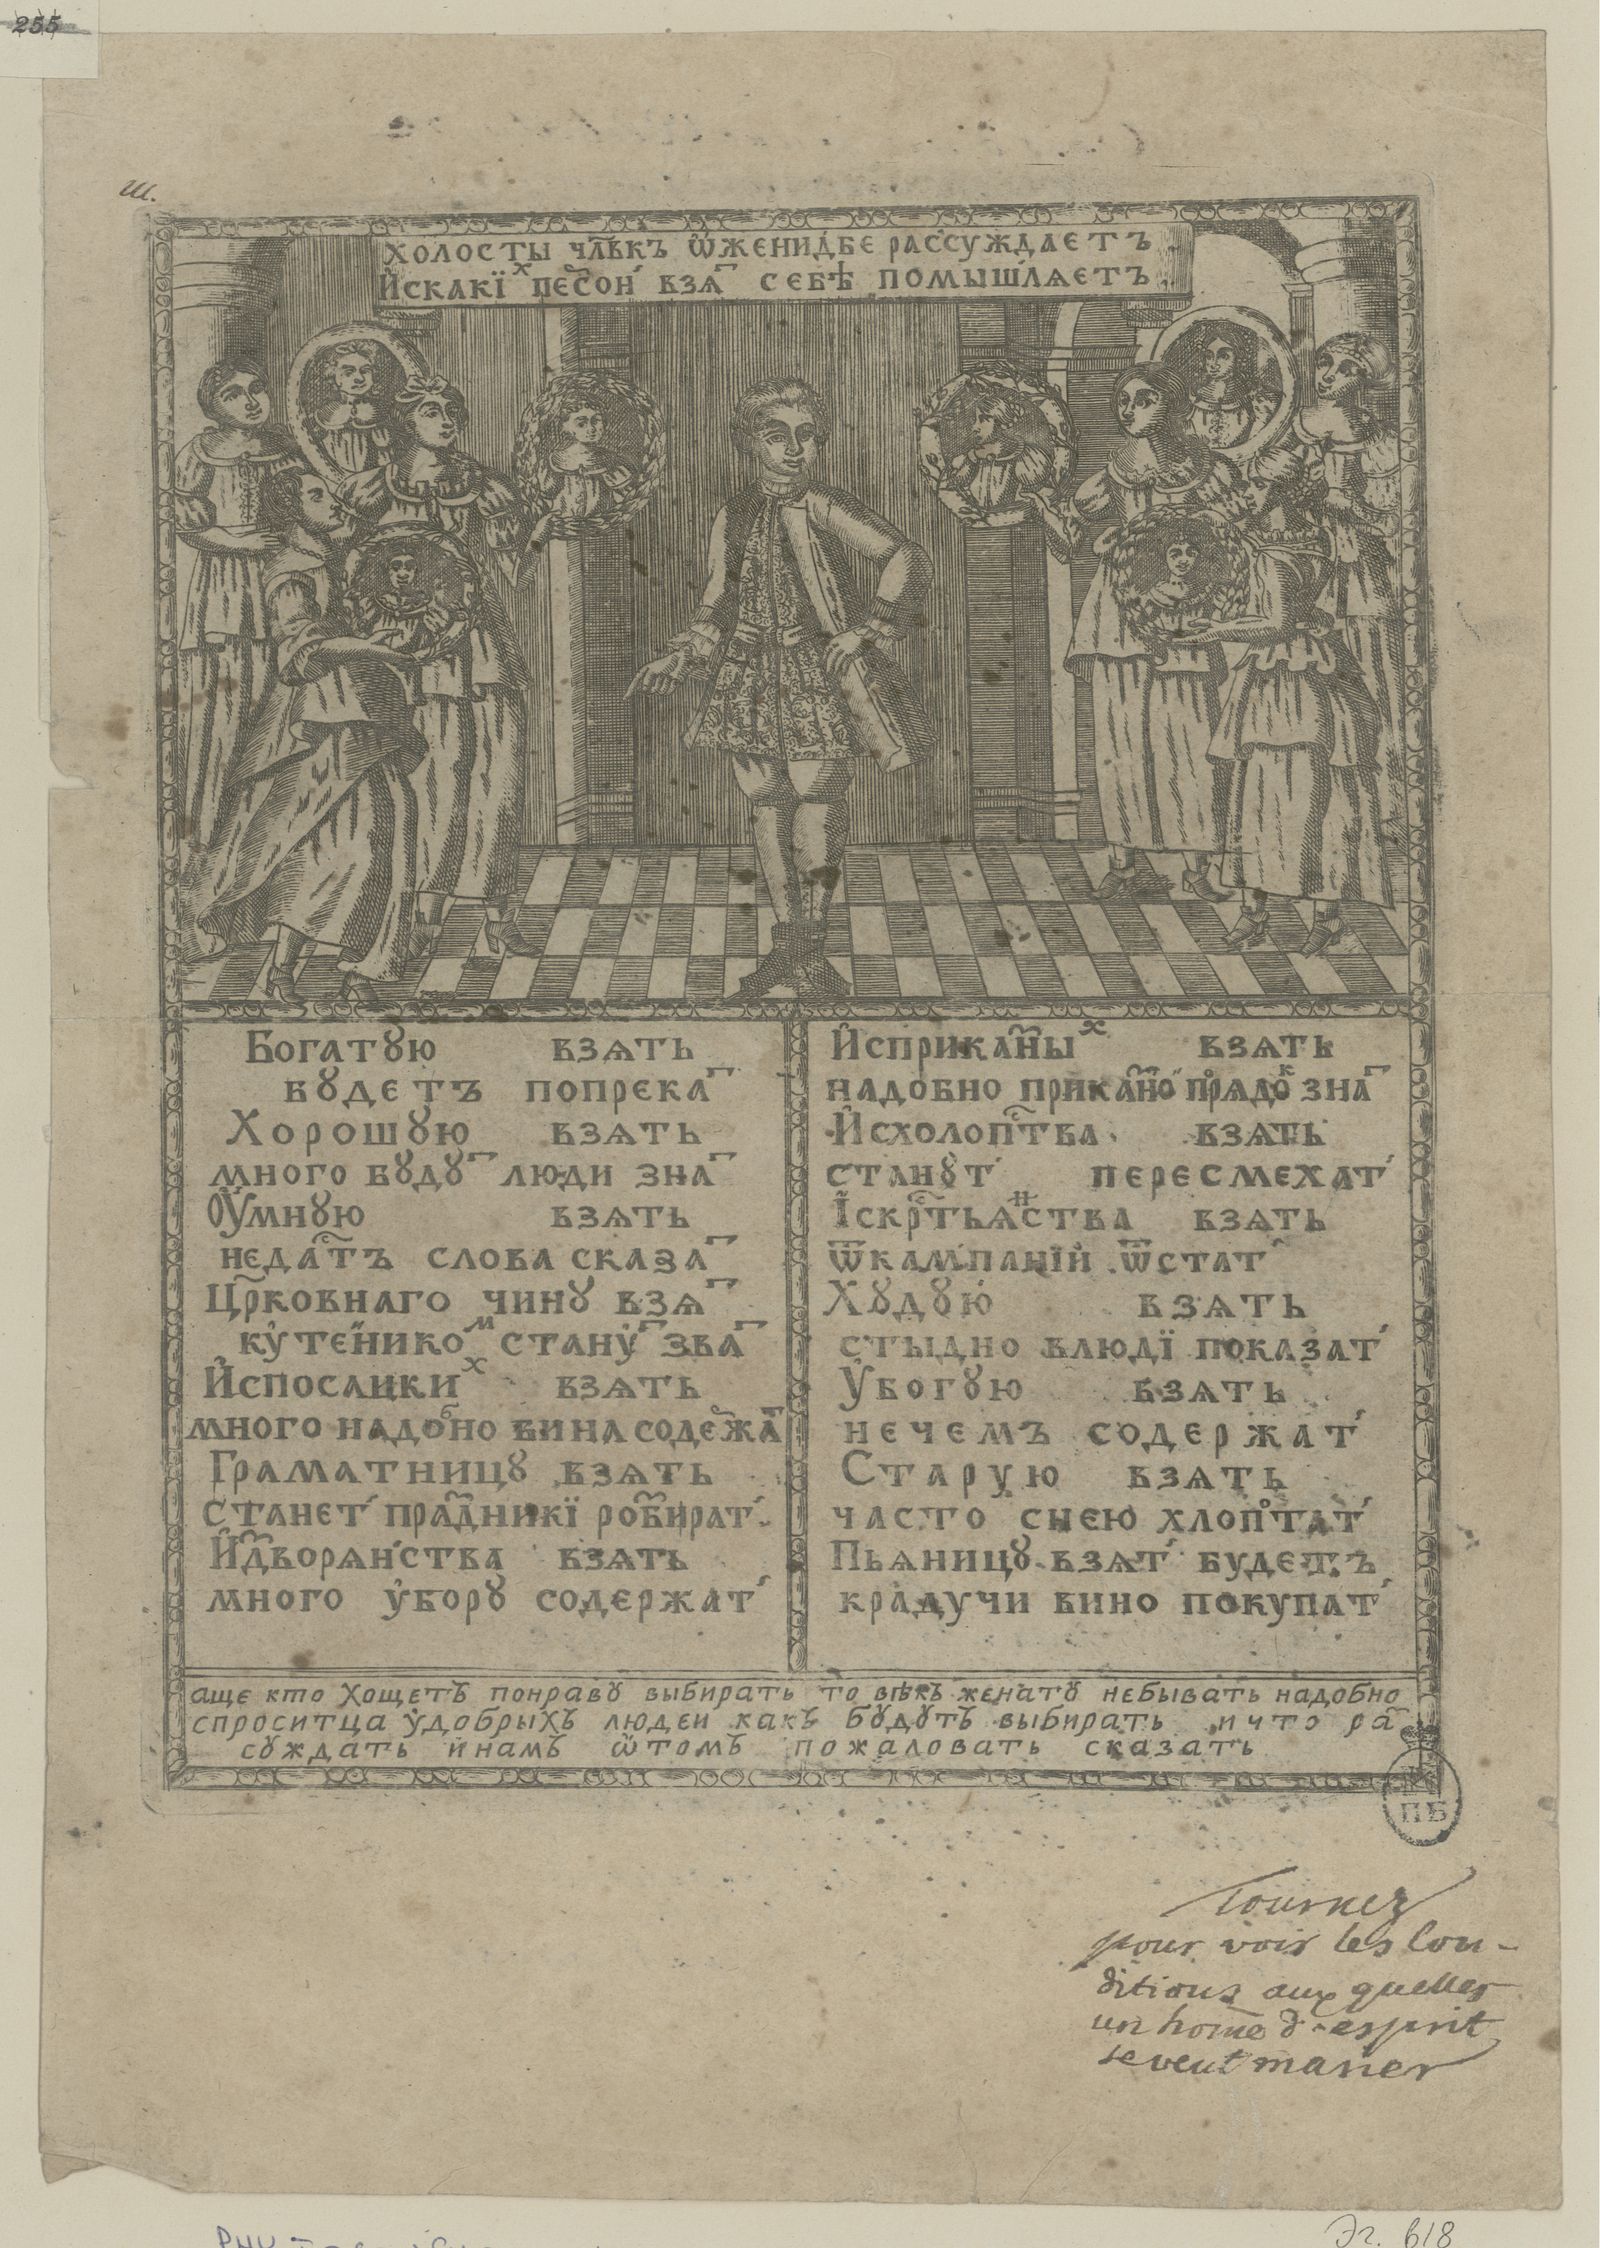 255
ш.
ХОЛОСТЫ ЧЛ҃ВКЪ ѾЖЕНИДБЕ РАССУЖДАЕТЪ
ИСКАКЇХ ПЕСОН ВЗЯТ СЕБѢ ПОМЫШЛЯЕТЪ
Богатꙋю взять
бꙋдетъ попрекат
Хорошꙋю взять
много бꙋдꙋт люди знат
Оумнꙋю взять
недастъ слова сказат
Црковнаго чинꙋ взят
кутейником станут зват
Испосацкиx взять
много надобно вина содержат
Граматницꙋ взять
станет праздникї розбират
Издворянства взять
много уборꙋ содержат
Исприказныx взять
надобно приказно порядок знат
Исхолопства взять
станꙋт пересмехат
Їскрстьянства взять
ѿкампанїи ѿстат
Хꙋдꙋю взять
стыдно влюдї показат
Убогꙋю взять
нечемъ содержат
Старую взять
часто снею хлопотат
Пьяницꙋ взят будетъ
крадучи вино покупат
аще кто хощетъ понравꙋ выбирать то вѣкъ женатꙋ небывать надобно
спроситца удобрыхъ людеи какъ бꙋдꙋтъ выбирать ичто ра
сꙋждать инамъ ѡтомъ пожаловать сказать
ПБ
Tournez
pour voir les con-
ditions aux quelles
un home d'esprit
se veut marier
Эл. 618